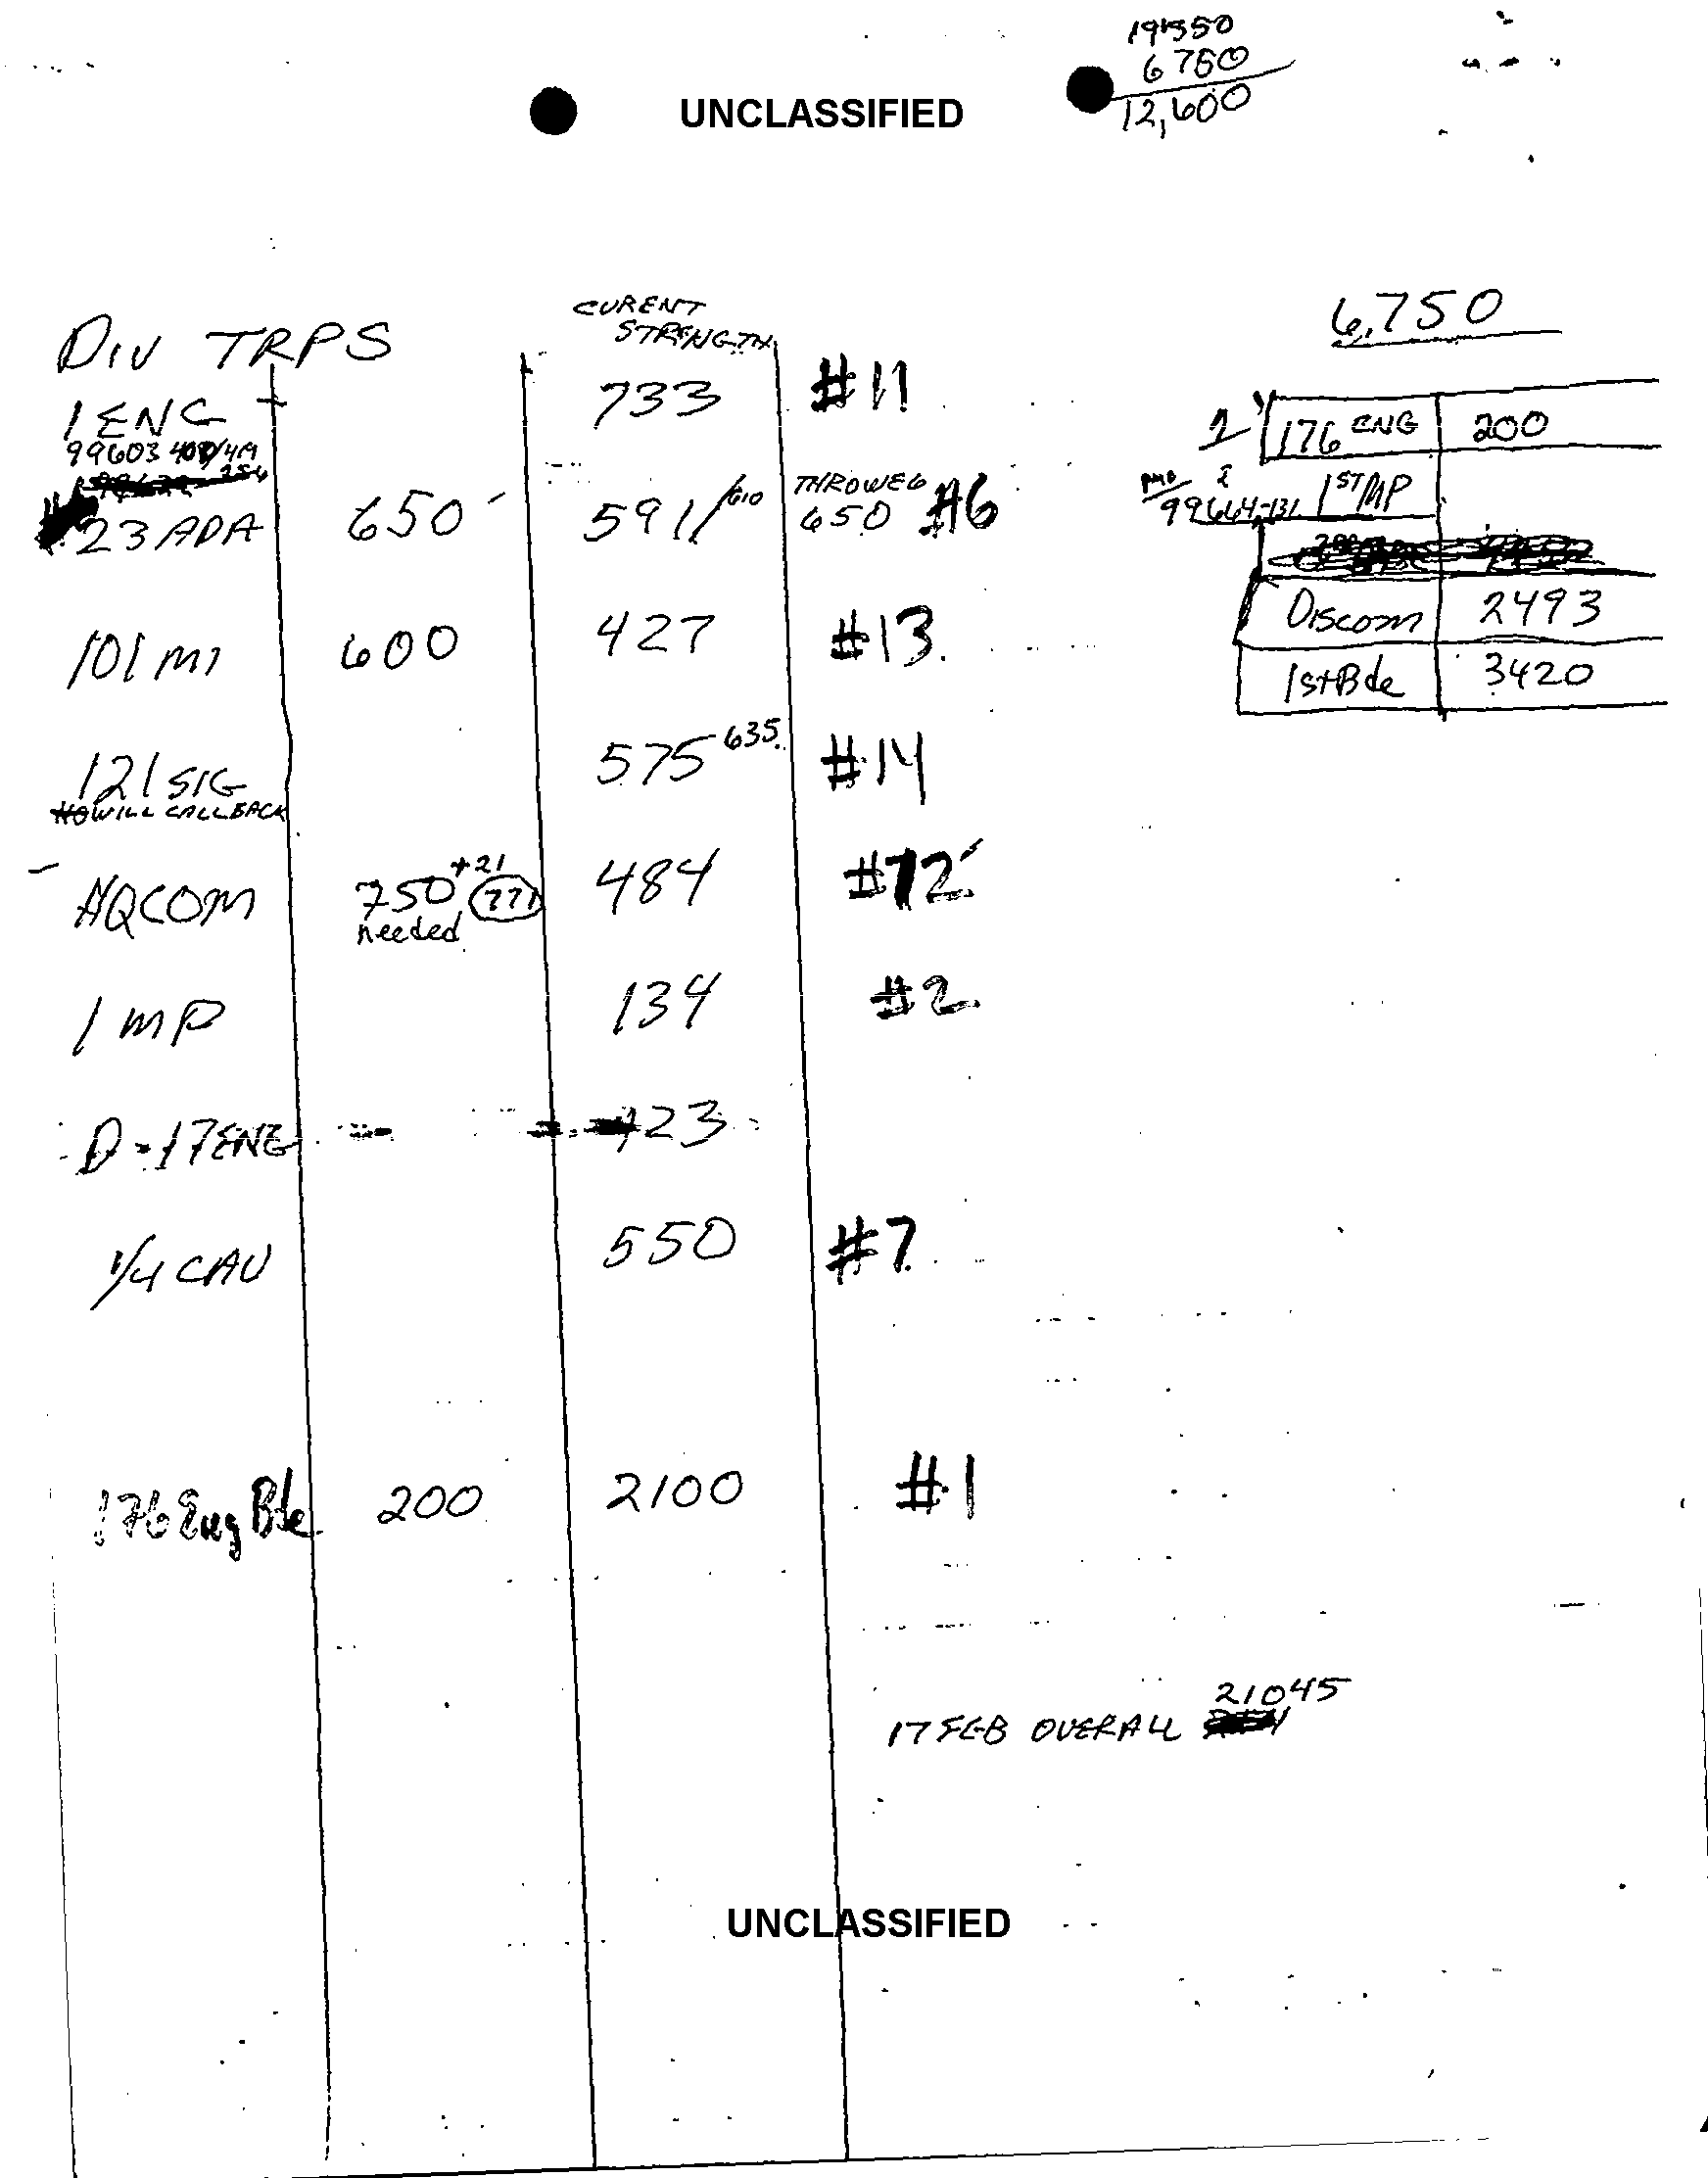 19350
6750
12,600
UNCLASSIFIED
6,750
DIV TRPS
CURENT
STRENGTH
1 ENG 733 #11
99603
23 ADA 650 591/610 THROWEG 650 #6
101 MI 600 427 #13
121 SIG 575 635 #14
WILL CALL BACK
HQCOM 750 +21 771 484 #12
needed
1 MP 134 #2
D-17 ENG 123
1/4 CAV 550 #7
176 Eng Bde 200 2100 #1
1 176 ENG 200
2 1ST MP
99664-131
Discom 2493
1st Bde 3420
21045
17 FEB OVERALL
UNCLASSIFIED